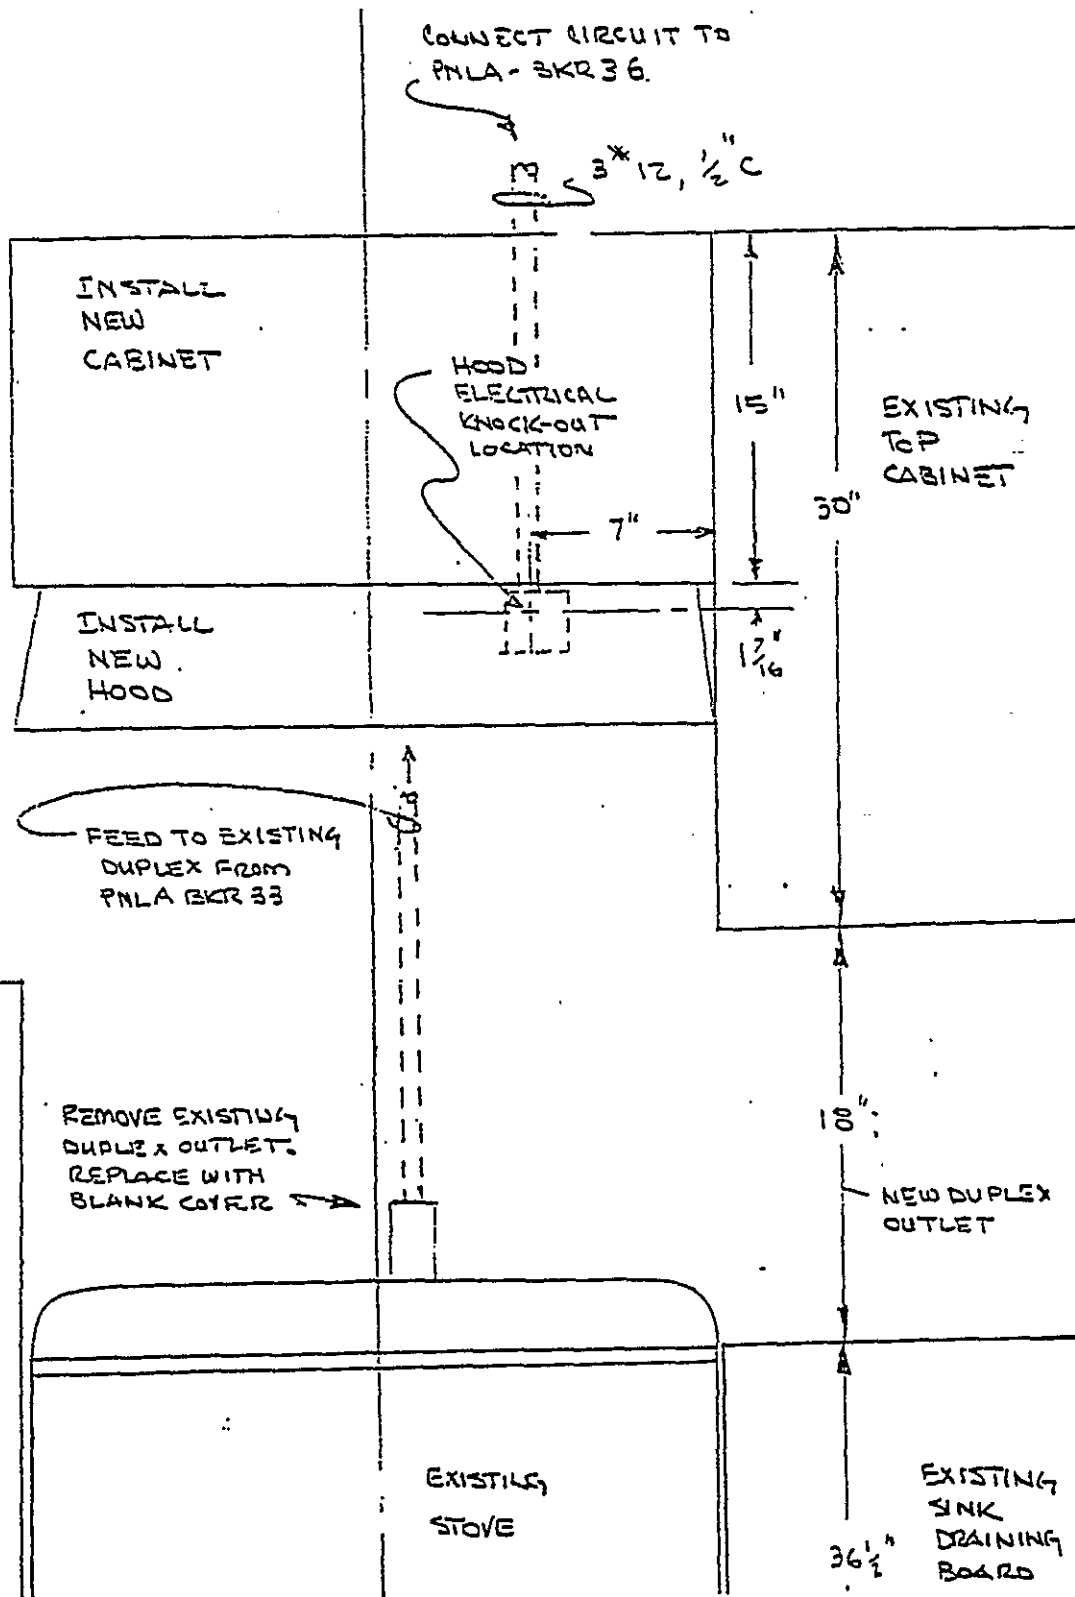 CONNECT CIRCUIT TO
PNLA - BKR 36.
3#12, 1/2" C
INSTALL
NEW
CABINET
HOOD
ELECTRICAL
KNOCK-OUT
LOCATION
15"
30"
EXISTING
TOP
CABINET
7"
INSTALL
NEW
HOOD
1 7/16"
FEED TO EXISTING
DUPLEX FROM
PNLA BKR 33
REMOVE EXISTING
DUPLEX OUTLET.
REPLACE WITH
BLANK COVER
18"
NEW DUPLEX
OUTLET
EXISTING
STOVE
36 1/2"
EXISTING
SINK
DRAINING
BOARD